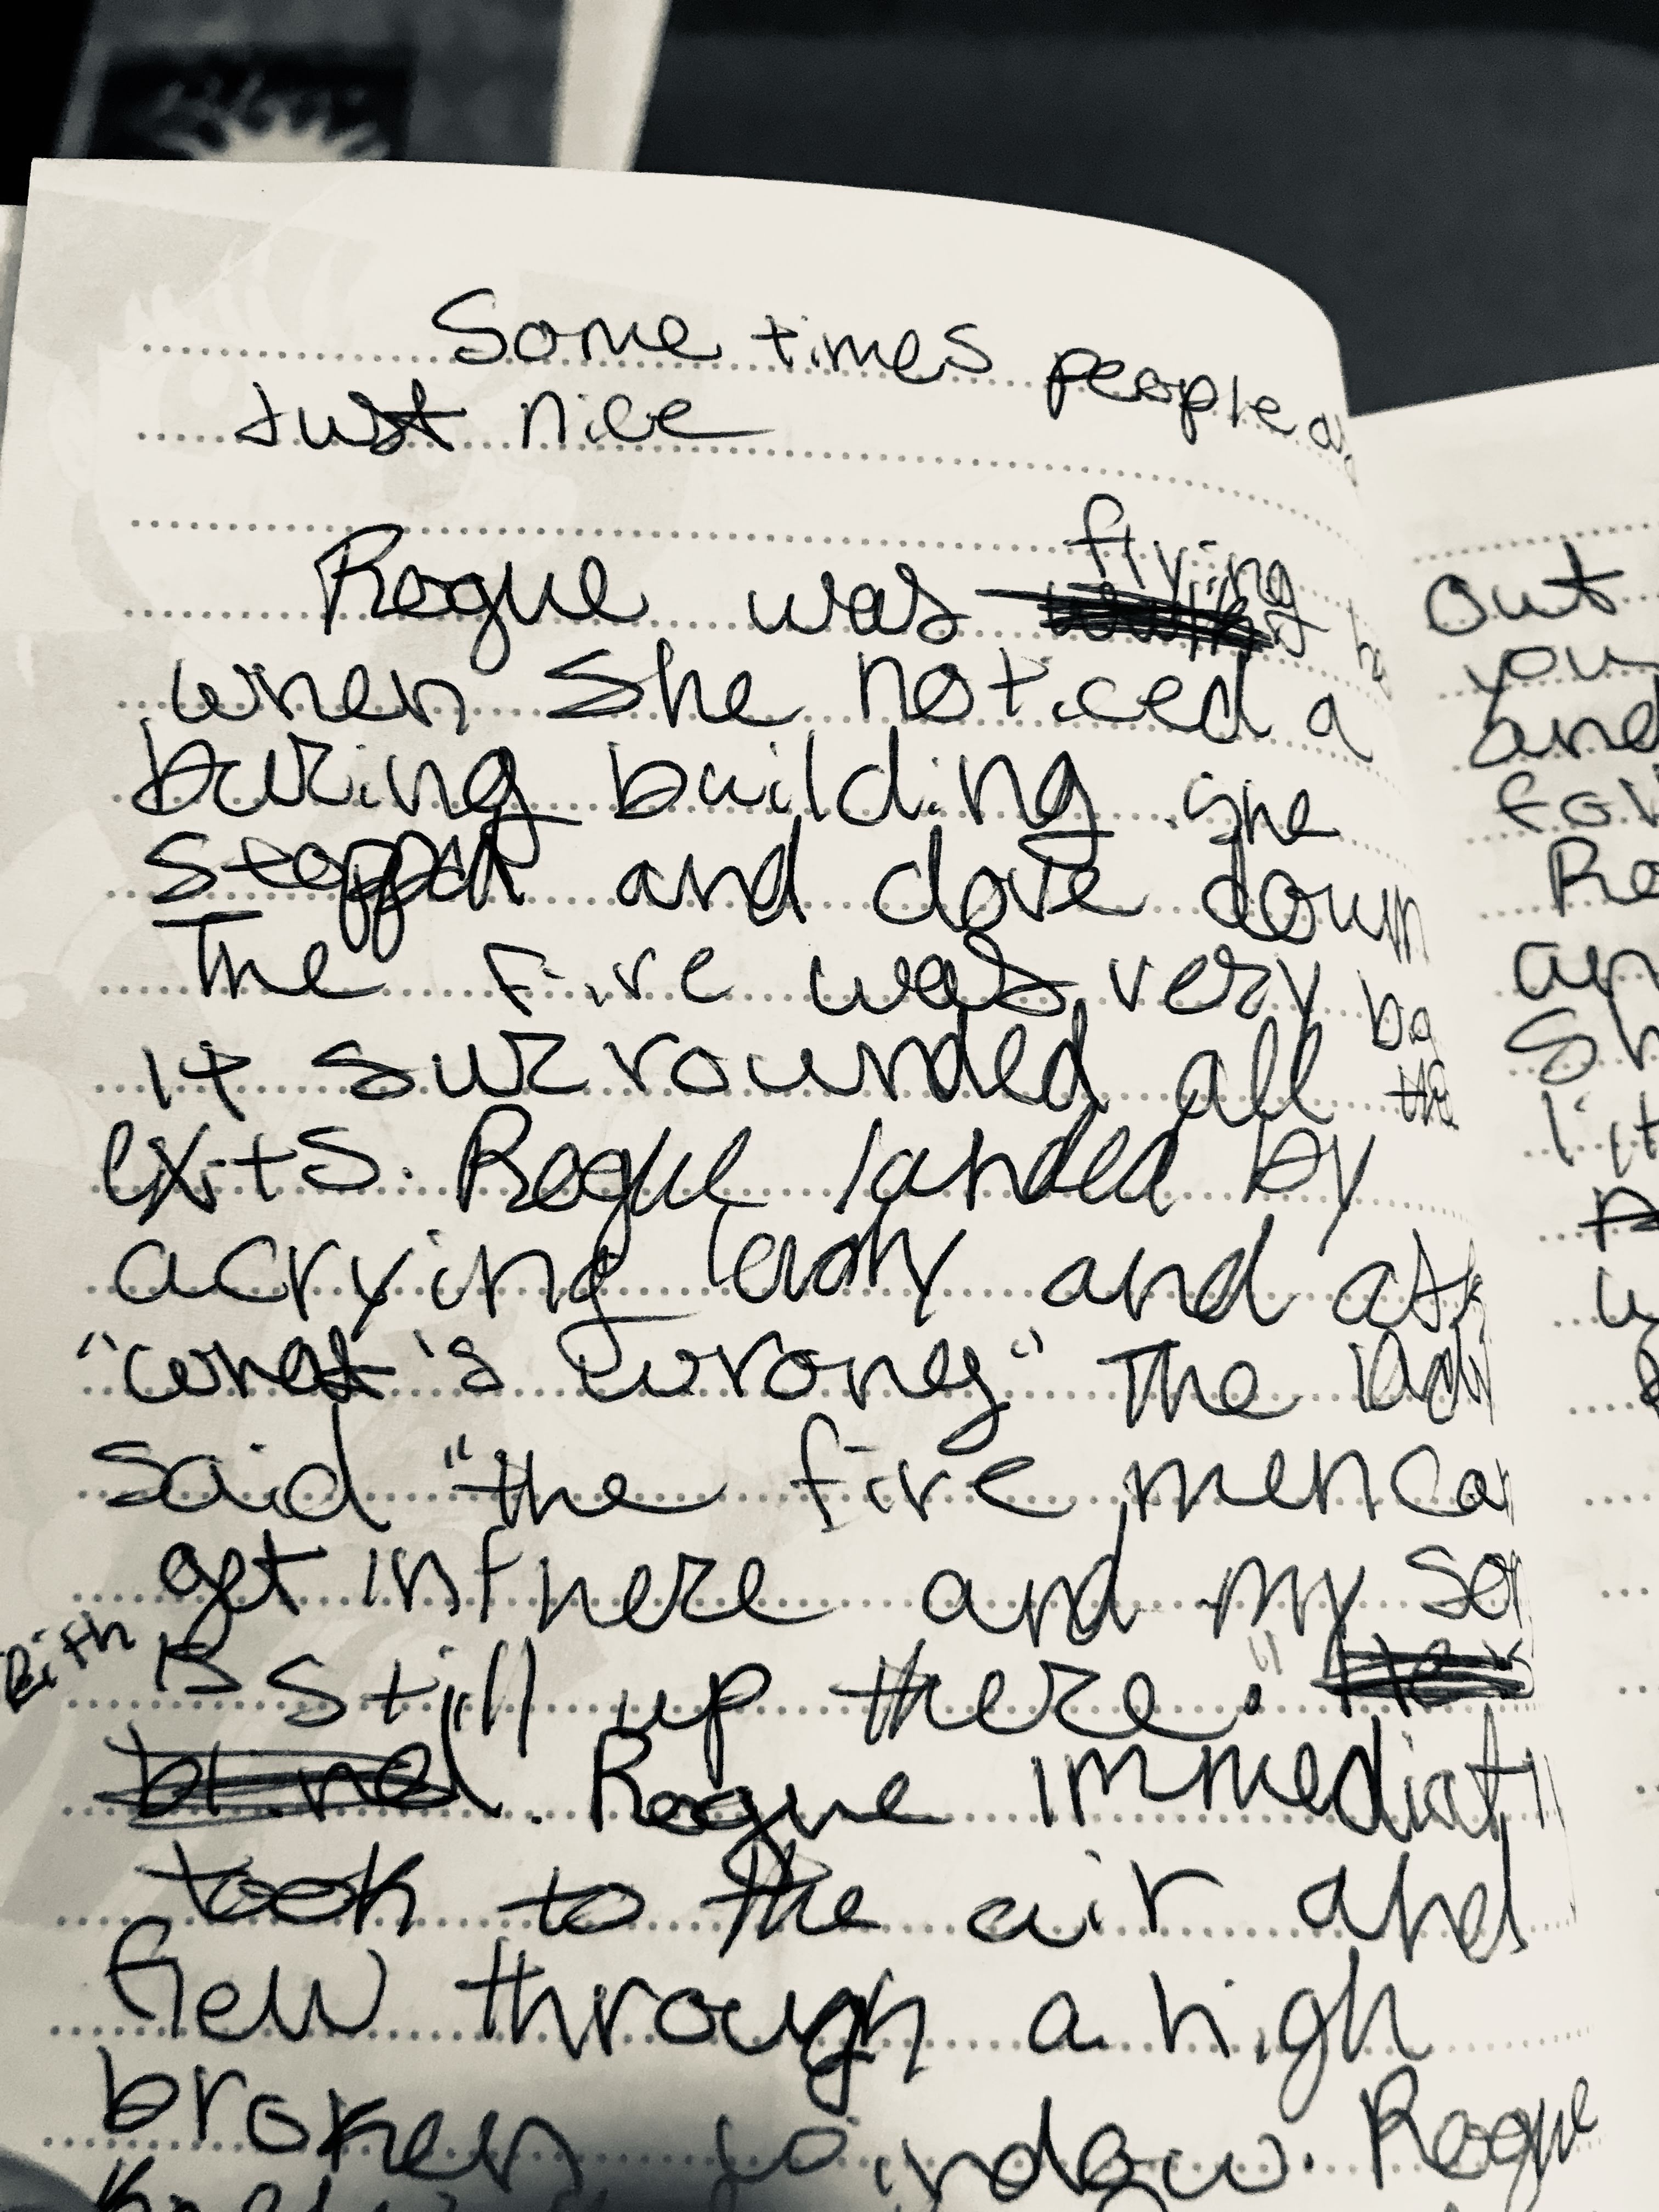 Some times people
Just nice
flying
Rogue was
when She noticed a
buring building. She
stopped and dove down
The Fire was very
it surrounded all the
exits. Rogue landed by
a crying lady and ask
"what's wrong" The lady
said "the fire men can
get in there and my son
is still up there."
blind. Rogue immediatl
took to the air and
flew through a high
broken window. Rogue
out
you
and